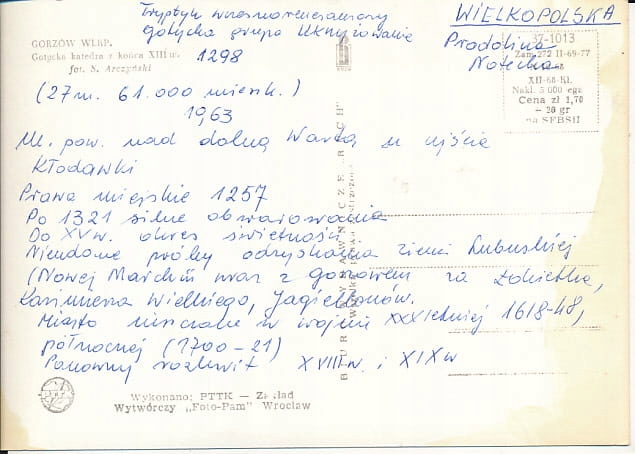 Tryptyk wczesnorenesansowy
gotycka grupa Ukrzyżowanie
WIELKOPOLSKA
Pradolina
Notecka
GORZÓW WLKP.
Gotycka katedra z końca XIII w.
1298
fot. N. Arczyński
37-1013
Zam. 272 II-69-77
XII-68-Kl.
Nakł. 5 000 egz
Cena zł 1,70
+ 20 gr
na SFBSiI
(27 m. 61.000 mieszk.)
1963
M. pow. nad dolną Wartą u ujścia
Kłodawki
Prawa miejskie 1257
Po 1321 silne obwarowania
Do XV w. okres świetności
Nieudane próby odzyskania ziemi Lubuskiej
(Nowej Marchii wraz z Gorzowem za Łokietka,
Kazimierza Wielkiego, Jagiellonów.
Miasto niszczone w wojnie XXXletniej 1618-48,
północnej (1700-21)
Ponowny rozkwit XVIII w. i XIX w
BIURO WYDAWNICZE „RUCH"
Wykonano: PTTK — Zakład
Wytwórczy „Foto-Pam" Wrocław